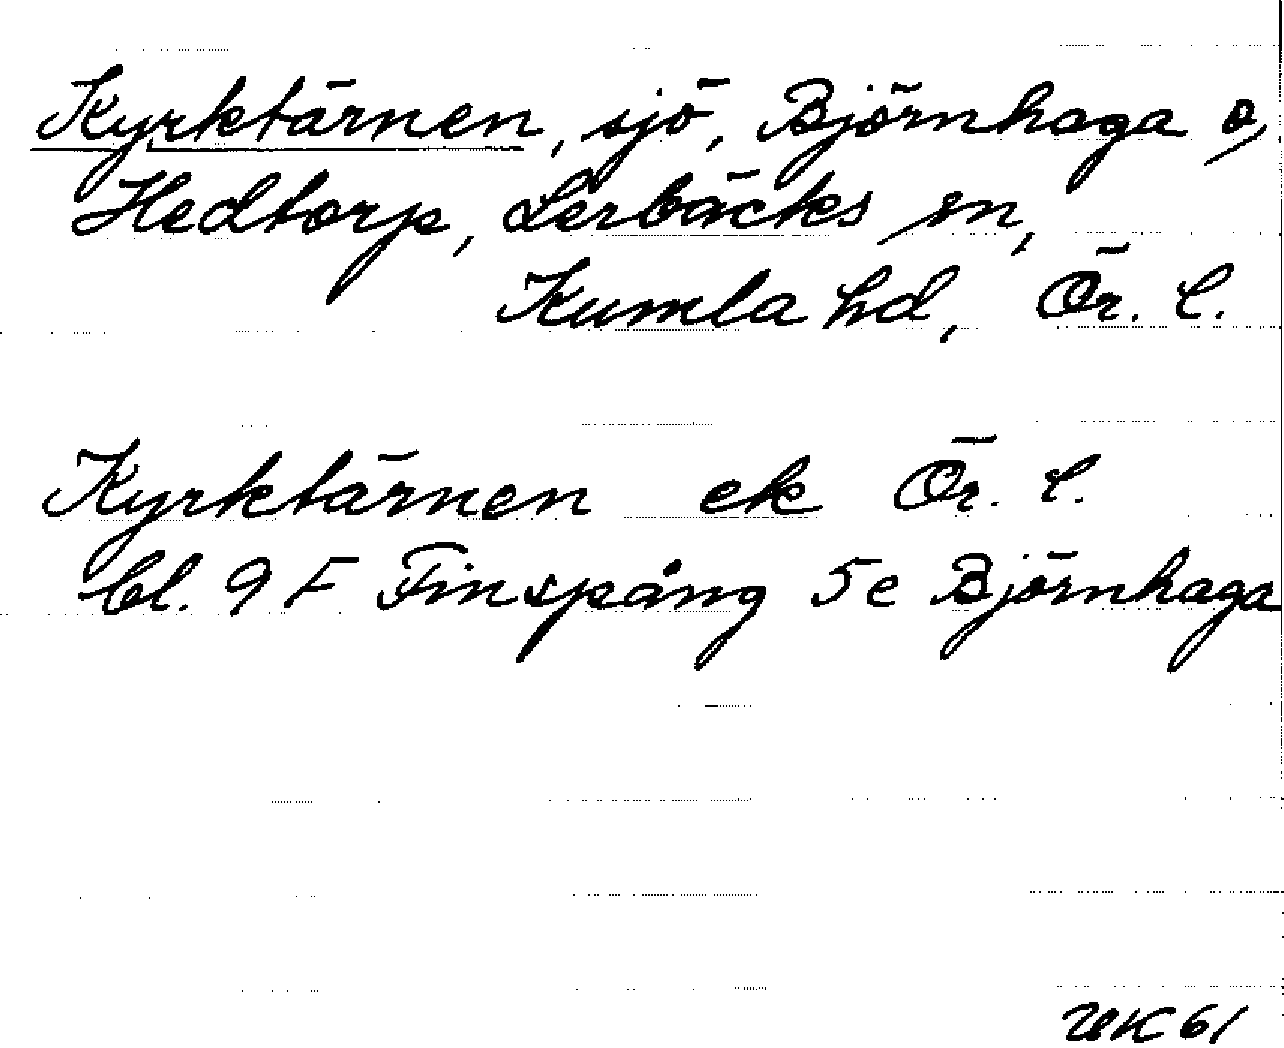 Kyrktärnen, sjö, Björnhaga o,
Hedtorp, Lerbäcks sn,
Kumla hd, Ör. l.
Kyrktärnen ek Ör. l.
bl. 9 F Finspång 5e Björnhaga
UK 61